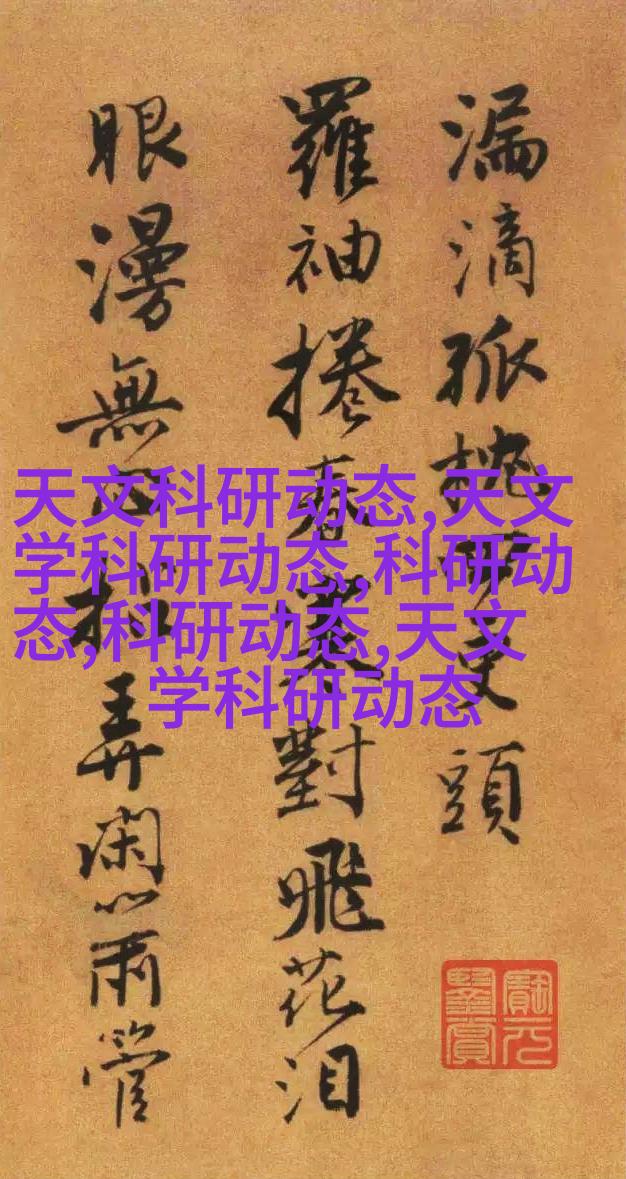 漏滴孤枕更頭
羅袖捲春對飛花泪
眼漫無弄閑兩管
天文科研动态,天文
学科研动态,科研动
态,科研动态,天文
学科研动态